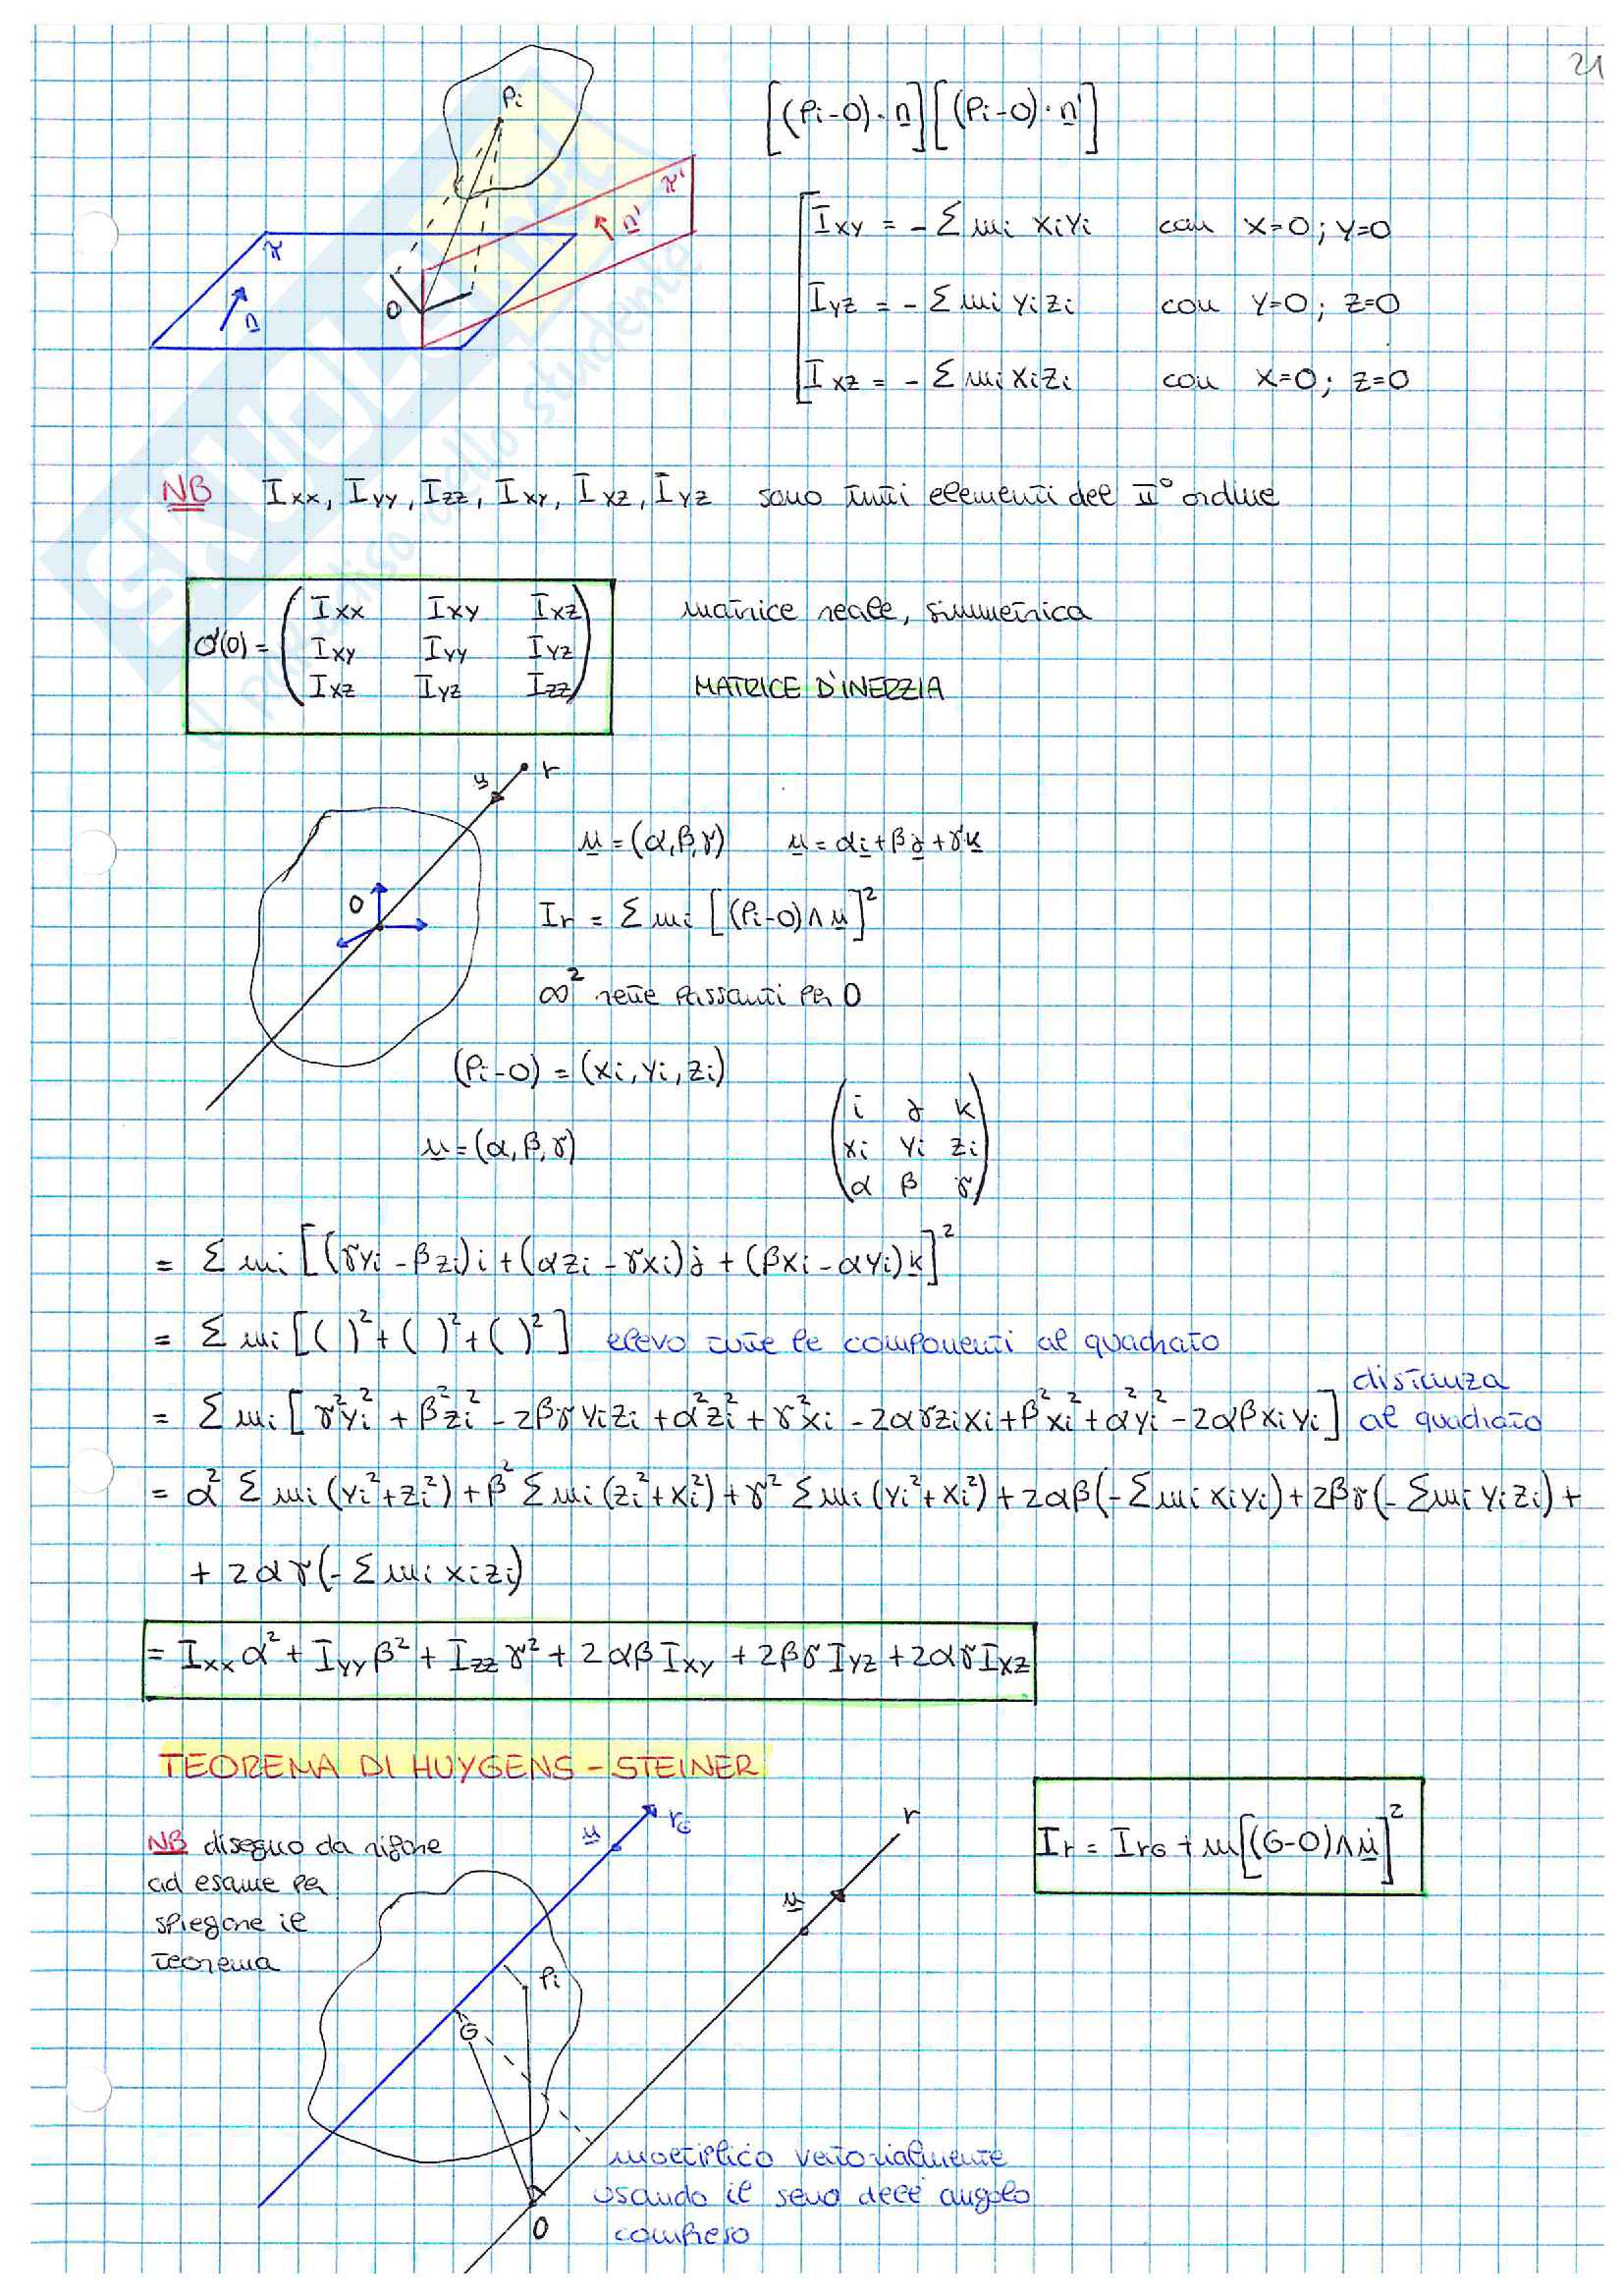 21
Pi
[(Pi-O)·n][(Pi-O)·n']
π'
n'
π
n
O
Ixy = - Σ mi xiyi con x=0; y=0
Iyz = - Σ mi yizi con y=0; z=0
Ixz = - Σ mi xizi con x=0; z=0
NB Ixx, Iyy, Izz, Ixy, Ixz, Iyz sono tutti elementi del II° ordine
Ixx Ixy Ixz matrice reale, simmetrica
σ(O) = Ixy Iyy Iyz
Ixz Iyz Izz MATRICE D'INERZIA
u r
u = (α,β,γ) u = αi+βj+γk
O
Ir = Σ mi [(Pi-O)∧u]²
∞² rette passanti per O
(Pi-O) = (xi, yi, zi)
i j k
u = (α, β, γ) xi yi zi
α β γ
= Σ mi [(γyi - βzi)i + (αzi - γxi)j + (βxi - αyi)k]²
= Σ mi [( )² + ( )² + ( )²] elevo tutte le componenti al quadrato
= Σ mi [γ²yi² + β²zi² - 2βγyizi + α²zi² + γ²xi - 2αγzixi + β²xi² + α²yi² - 2αβxiyi] distanza al quadrato
= α² Σ mi (yi²+zi²) + β² Σ mi (zi²+xi²) + γ² Σ mi (yi²+xi²) + 2αβ(-Σ mi xiyi) + 2βγ(-Σ mi yizi) +
+ 2αγ(-Σ mi xizi)
= Ixxα² + Iyyβ² + Izzγ² + 2αβIxy + 2βγIyz + 2αγIxz
TEOREMA DI HUYGENS-STEINER
u rG
r
Ir = IrG + m[(G-O)∧u]²
NB disegno da rifare
ad esame per
spiegare il
teorema
u
Pi
G
moltiplico vettorialmente
usando il seno dell'angolo
compreso
O
SKUOLA.net
il paradiso dello studente